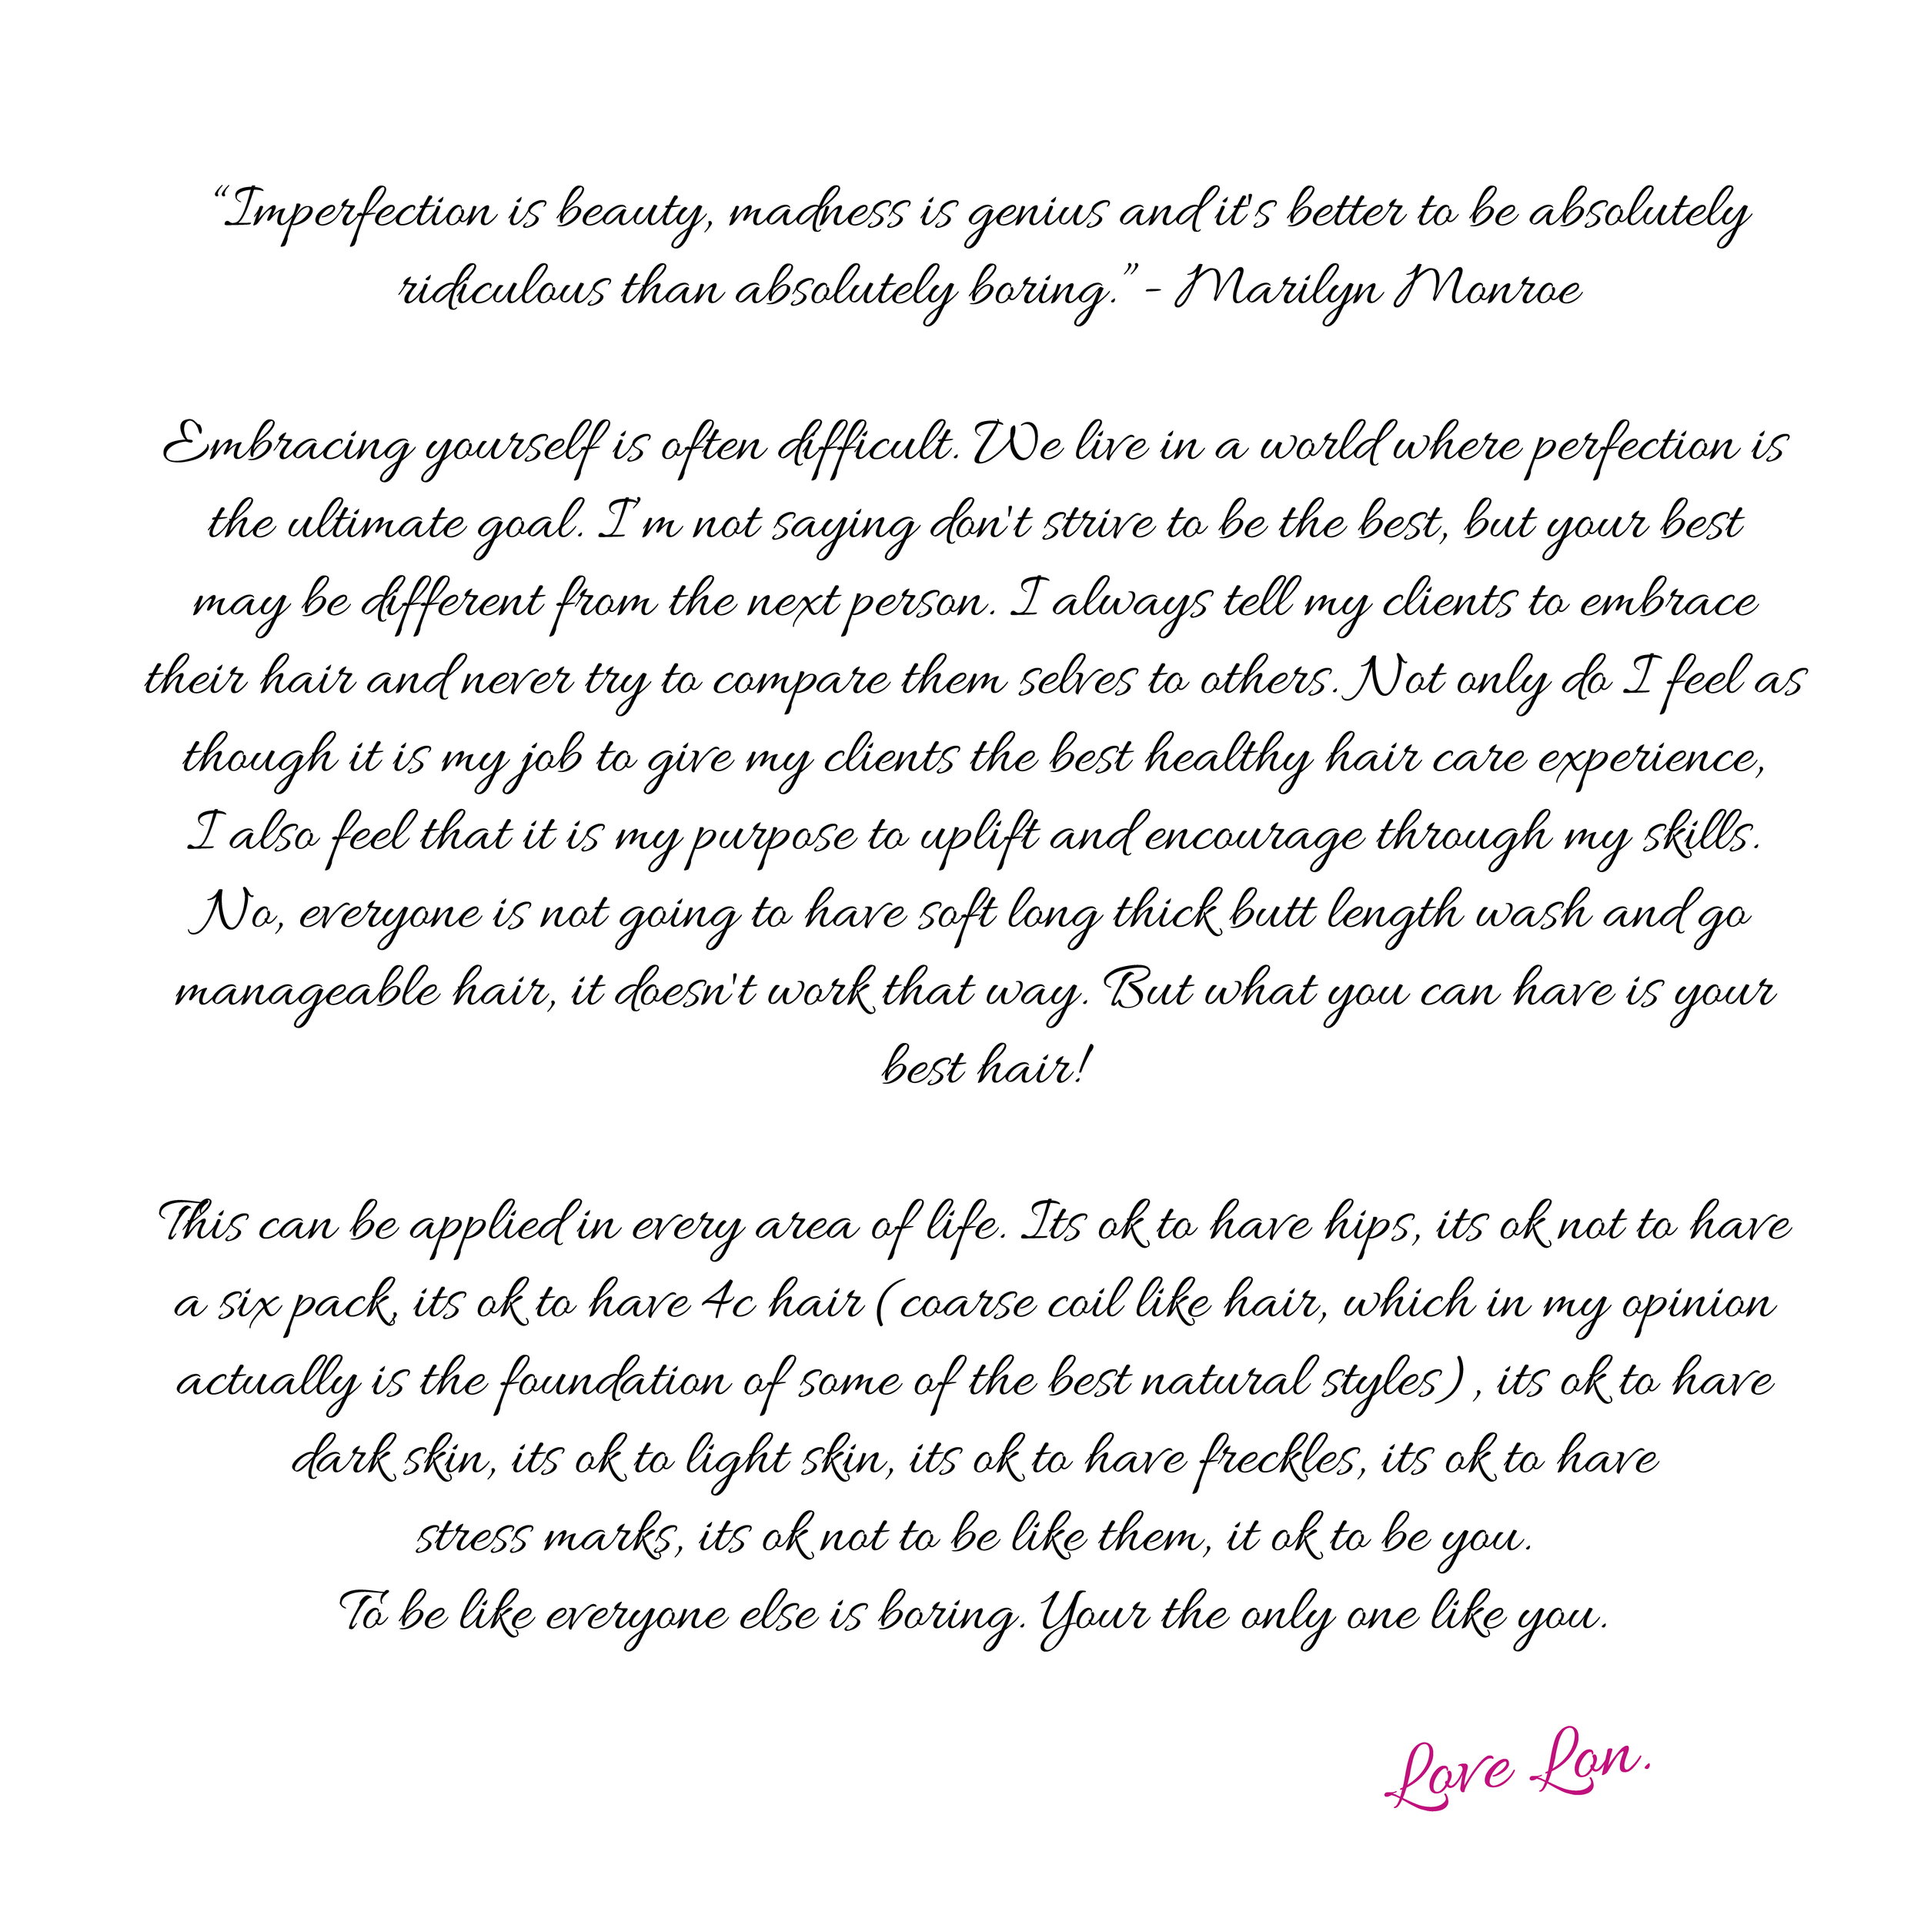 “Imperfection is beauty, madness is genius and it's better to be absolutely
ridiculous than absolutely boring.” - Marilyn Monroe
Embracing yourself is often difficult. We live in a world where perfection is
the ultimate goal. I’m not saying don't strive to be the best, but your best
may be different from the next person. I always tell my clients to embrace
their hair and never try to compare them selves to others. Not only do I feel as
though it is my job to give my clients the best healthy hair care experience,
I also feel that it is my purpose to uplift and encourage through my skills.
No, everyone is not going to have soft long thick butt length wash and go
manageable hair, it doesn't work that way. But what you can have is your
best hair!
This can be applied in every area of life. Its ok to have hips, its ok not to have
a six pack, its ok to have 4c hair (coarse coil like hair, which in my opinion
actually is the foundation of some of the best natural styles) , its ok to have
dark skin, its ok to light skin, its ok to have freckles, its ok to have
stress marks, its ok not to be like them, it ok to be you.
To be like everyone else is boring. Your the only one like you.
Love Lon.